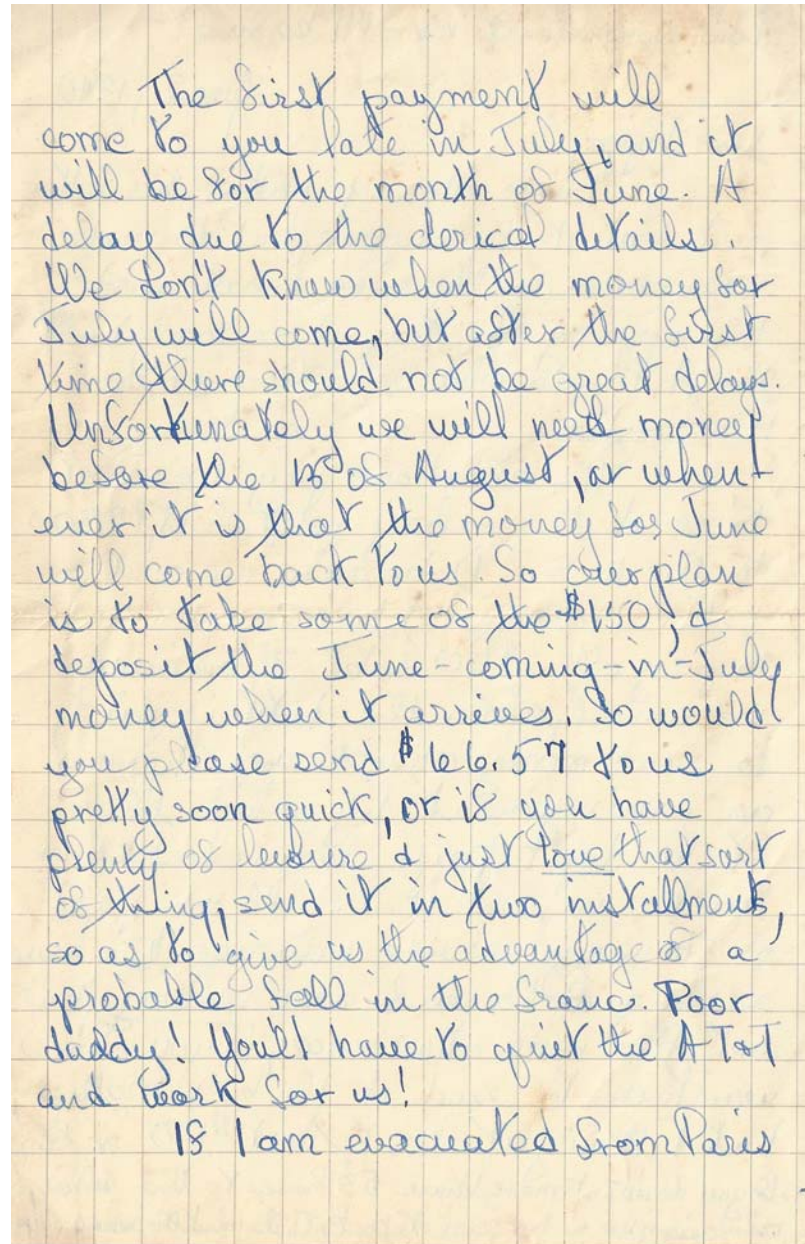 The first payment will
come to you late in July, and it
will be for the month of June. A
delay due to the clerical details.
We don't know when the money for
July will come, but after the first
time there should not be great delays.
Unfortunately we will need money
before the 15 of August, or when-
ever it is that the money for June
will come back to us. So our plan
is to take some of the $150, &
deposit the June-coming-in-July
money when it arrives. So would
you please send $66.57 to us
pretty soon quick, or if you have
plenty of leisure & just love that sort
of thing, send it in two installments,
so as to give us the advantage of a
probable fall in the franc. Poor
daddy! You'll have to quit the AT&T
and work for us!
If I am evacuated from Paris